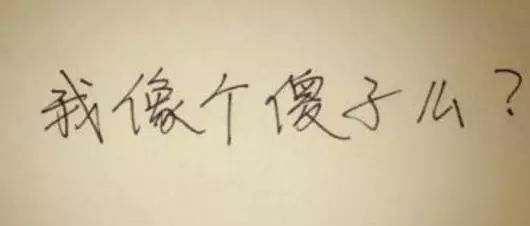 我像个傻子么？